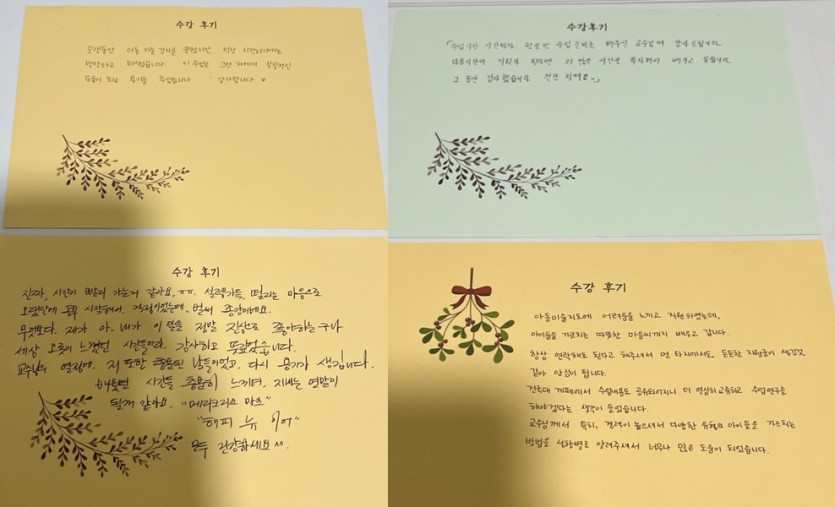 수강 후기
오랫동안 아동 미술 강사를 꿈꿨지만 막상 시작하려니
막막하고 두려웠습니다. 이 수업은 그런 저에게 실질적인
도움이 되고 용기를 주었습니다. 감사합니다
수강후기
수업시간 시간마다 수업 준비를 해주신 교수님께 감사드립니다.
다음시간에 기회가 된다면 더 많은 시간을 투자해서 배우고 싶습니다.
그 동안 감사했습니다. 건강
수강 후기
진짜, 시간이 빨리 가는거 같아요. ㅠㅠ. 설렘가득, 떨리는 마음으로
시작해서, 벌써 종강이네요.
무엇보다. 제가 아, 내가 이 일을 정말 진심으로 좋아하는구나
세상 느꼈던 시간들이라. 감사하고 뜻깊었습니다.
교수님의 열정에, 저 또한 날들이었고, 다시 용기가 생깁니다.
배웠던 시간들 느끼며, 지내는 연말이
될거 같아요. "메리크리스마스"
"해피 뉴 이어"
모두 건강하세요 ^^.
수강 후기
아동미술지도에 어려움을 느끼고 지원하였는데,
아이들을 가르치는 따뜻한 마음씨까지 배우고 갑니다.
항상 연락해도 된다고 해주셔서 먼 타지에서도 든든한 지원군이 생긴것
같아 안심이 됩니다.
건국대 카페에서 수업내용도 공유되어지니 더 열심히 교류하고 수업연구를
해야겠다는 생각이 들었습니다.
교수님께서 특히, 경력이 높으셔서 다양한 유형의 아이들을 가르치는
방법을 성향별로 알려주셔서 너무나 많은 도움이 되었습니다.